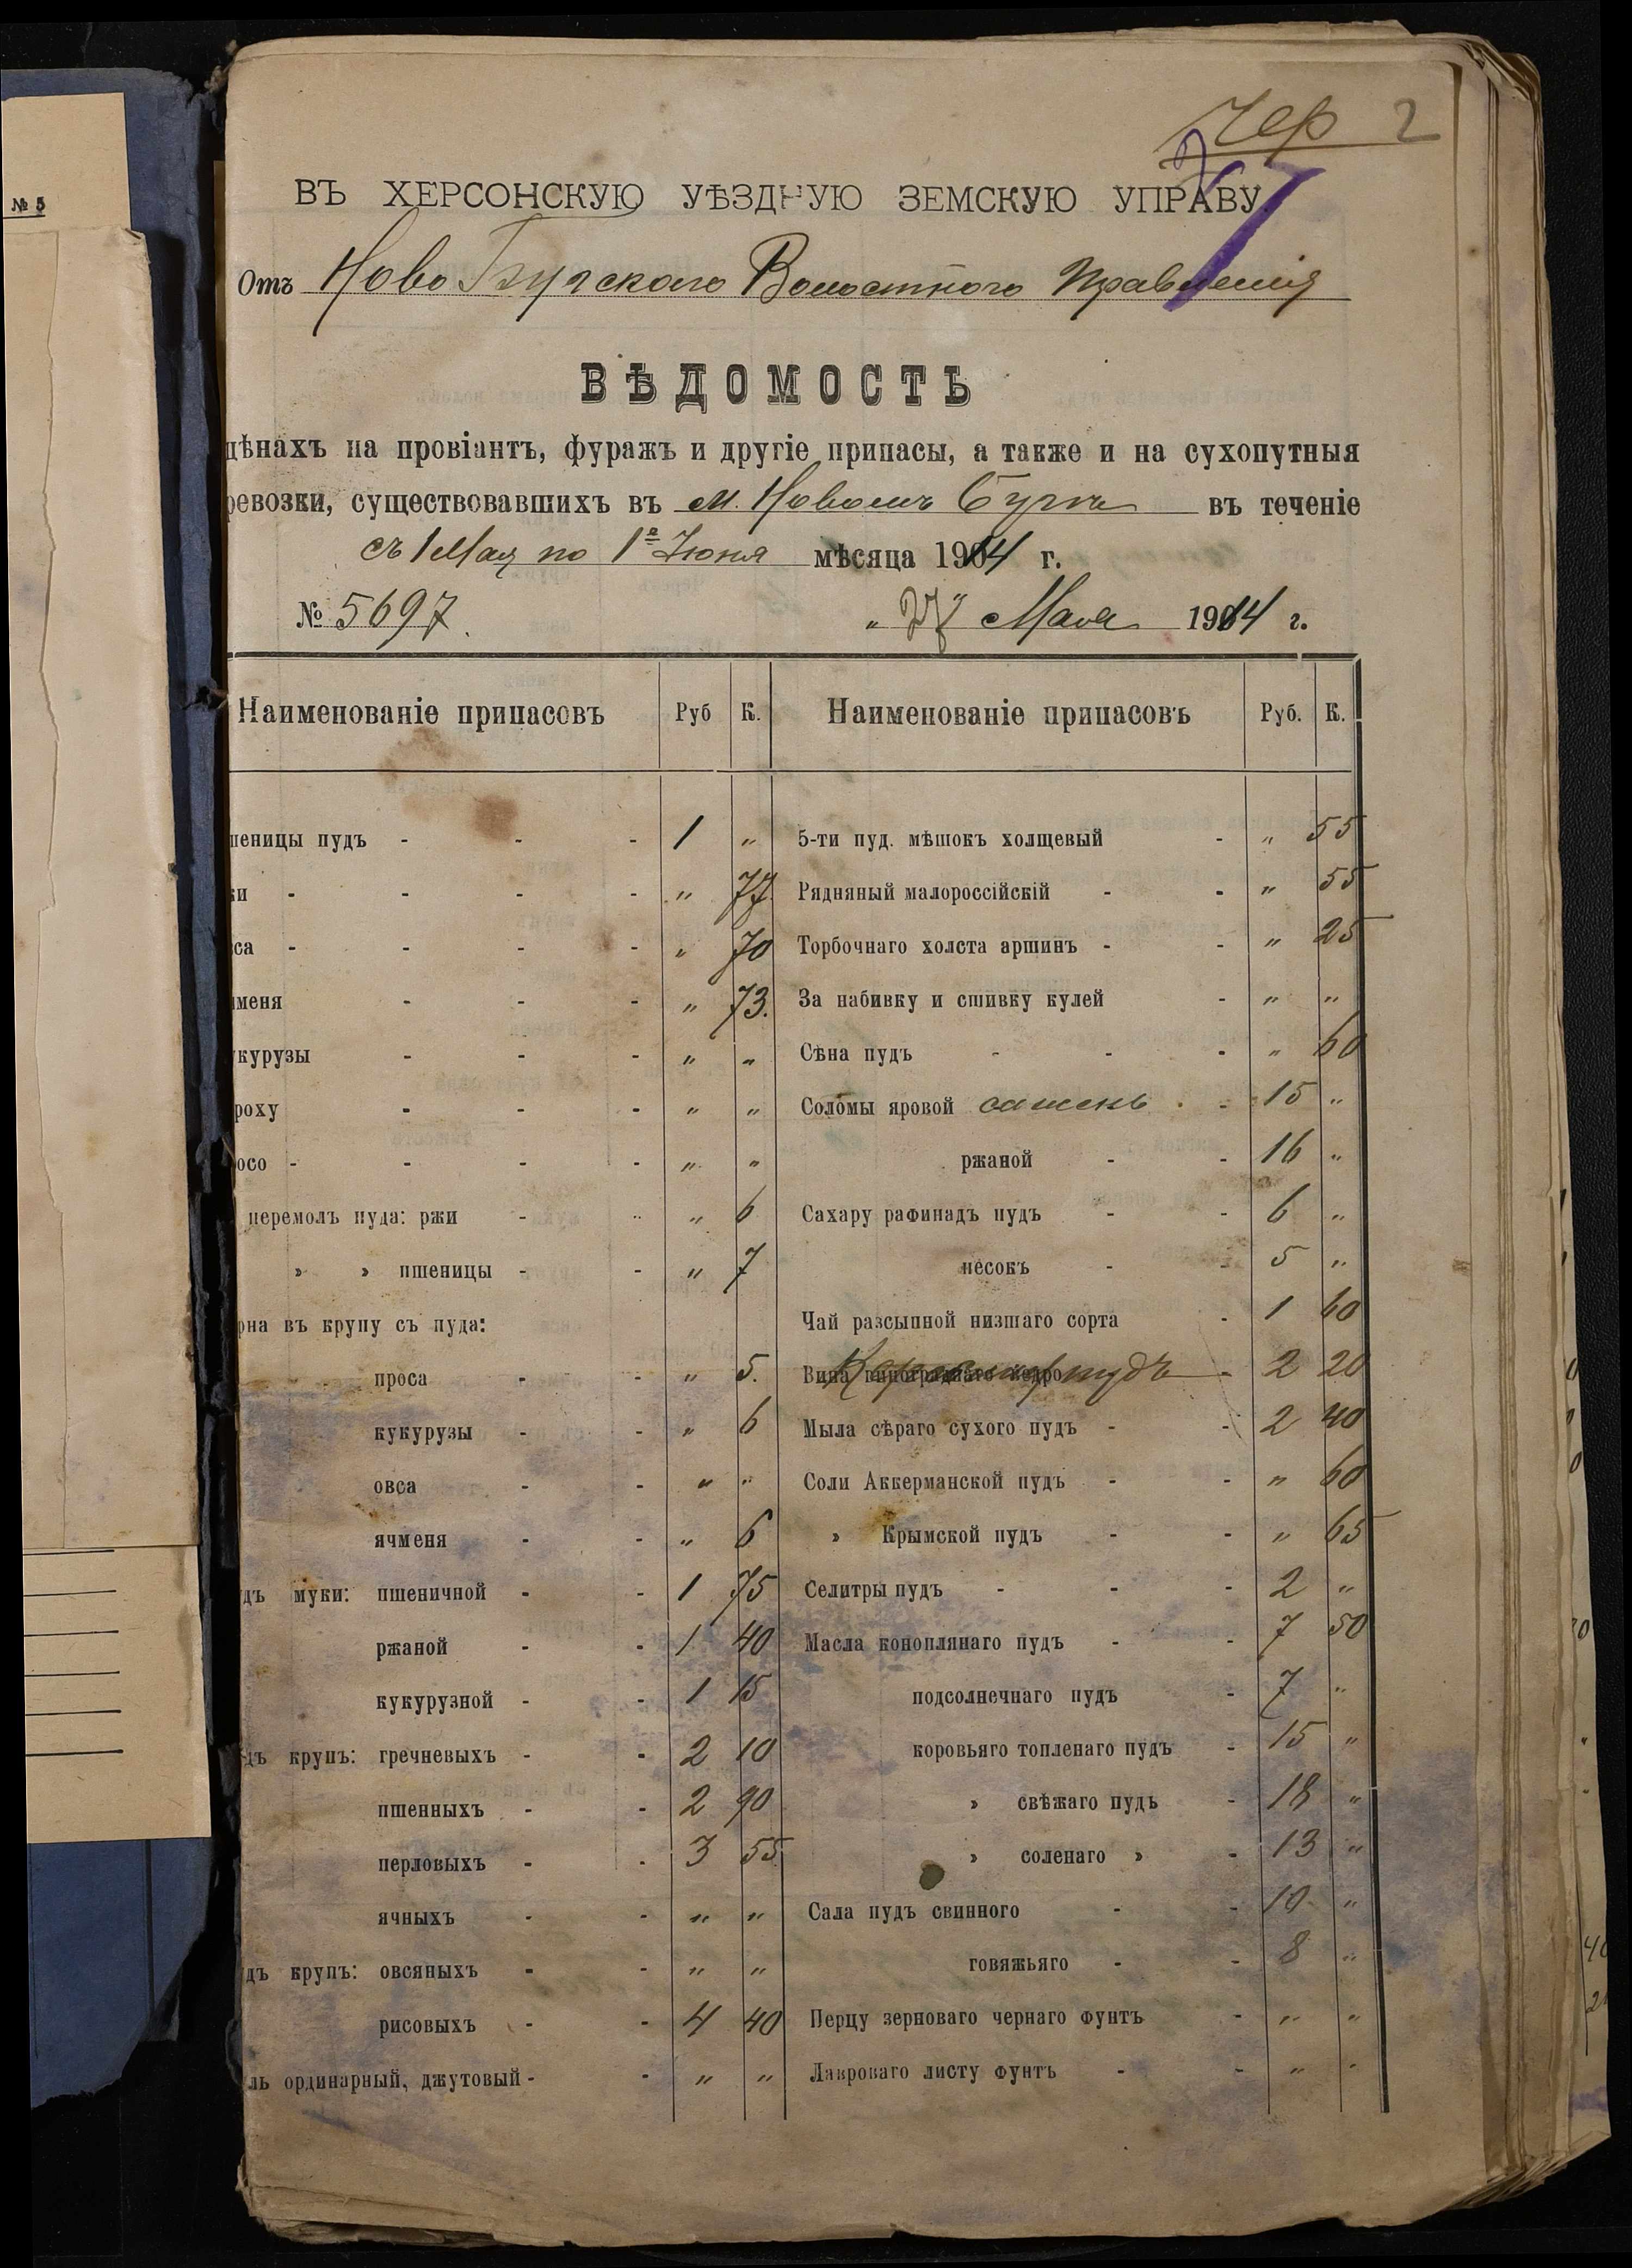 № 5
Чер 2
ВЪ ХЕРСОНСКУЮ УѢЗДНУЮ ЗЕМСКУЮ УПРАВУ.
Отъ Ново Бугскаго Волостного Правленія
ВѢДОМОСТЬ
цѣнахъ на провіантъ, фуражъ и другіе припасы, а также и на сухопутныя
ревозки, существовавшихъ въ м. Новомъ Бугѣ въ теченіе
съ 1 Мая по 1е Іюня мѣсяца 1914 г.
№ 5697. „27“ Мая 1914 г.
Наименованіе припасовъ Руб К. Наименованіе припасовъ Руб. К.
шеницы пудъ - - - 1 „ 5-ти пуд. мѣшокъ холщевый - „ 55
жи - - - - „ 77. Рядняный малороссійскій - - „ 55
вса - - - - „ 70 Торбочнаго холста аршинъ - - „ 25
чменя - - - „ 73. За набивку и сшивку кулей - „ „
укурузы - - - „ „ Сѣна пудъ - - - „ 60
роху - - - „ „ Соломы яровой сажень - - 15 „
росо - - - - „ „ ржаной - - 16 „
перемолъ пуда: ржи - - „ 6 Сахару рафинадъ пудъ - - 6 „
» » пшеницы - - „ 7 песокъ - - 5 „
рна въ крупу съ пуда: Чай разсыпной низшаго сорта - 1 60
проса - - „ 5. Вина винограднаго ведро пудъ - 2 20
кукурузы - - „ 6 Мыла сѣраго сухого пудъ - - 2 40
овса - - „ „ Соли Аккерманской пудъ - - „ 60
ячменя - - „ 6 » Крымской пудъ - - „ 65
дъ муки: пшеничной - - 1 75 Селитры пудъ - - - 2 „
ржаной - - 1 40 Масла коноплянаго пудъ - - 7 50
кукурузной - - 1 15 подсолнечнаго пудъ - 7 „
дъ крупъ: гречневыхъ - - 2 10 коровьяго топленаго пудъ - 15 „
пшенныхъ - - 2 90 » свѣжаго пудъ - 18 „
перловыхъ - - 3 55 » соленаго » - 13 „
ячныхъ - - „ „ Сала пудъ свинного - - 10 „
дъ крупъ: овсяныхъ - - „ „ говяжьяго - - 8 „
рисовыхъ - - 4 40 Перцу зерноваго чернаго фунтъ - „ „
ль ординарный, джутовый - - „ „ Лавроваго листу фунтъ - - „ „